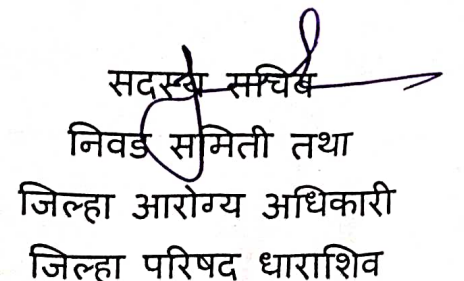 सदस्य सचिव
निवड समिती तथा
जिल्हा आरोग्य अधिकारी
जिल्हा परिषद धाराशिव